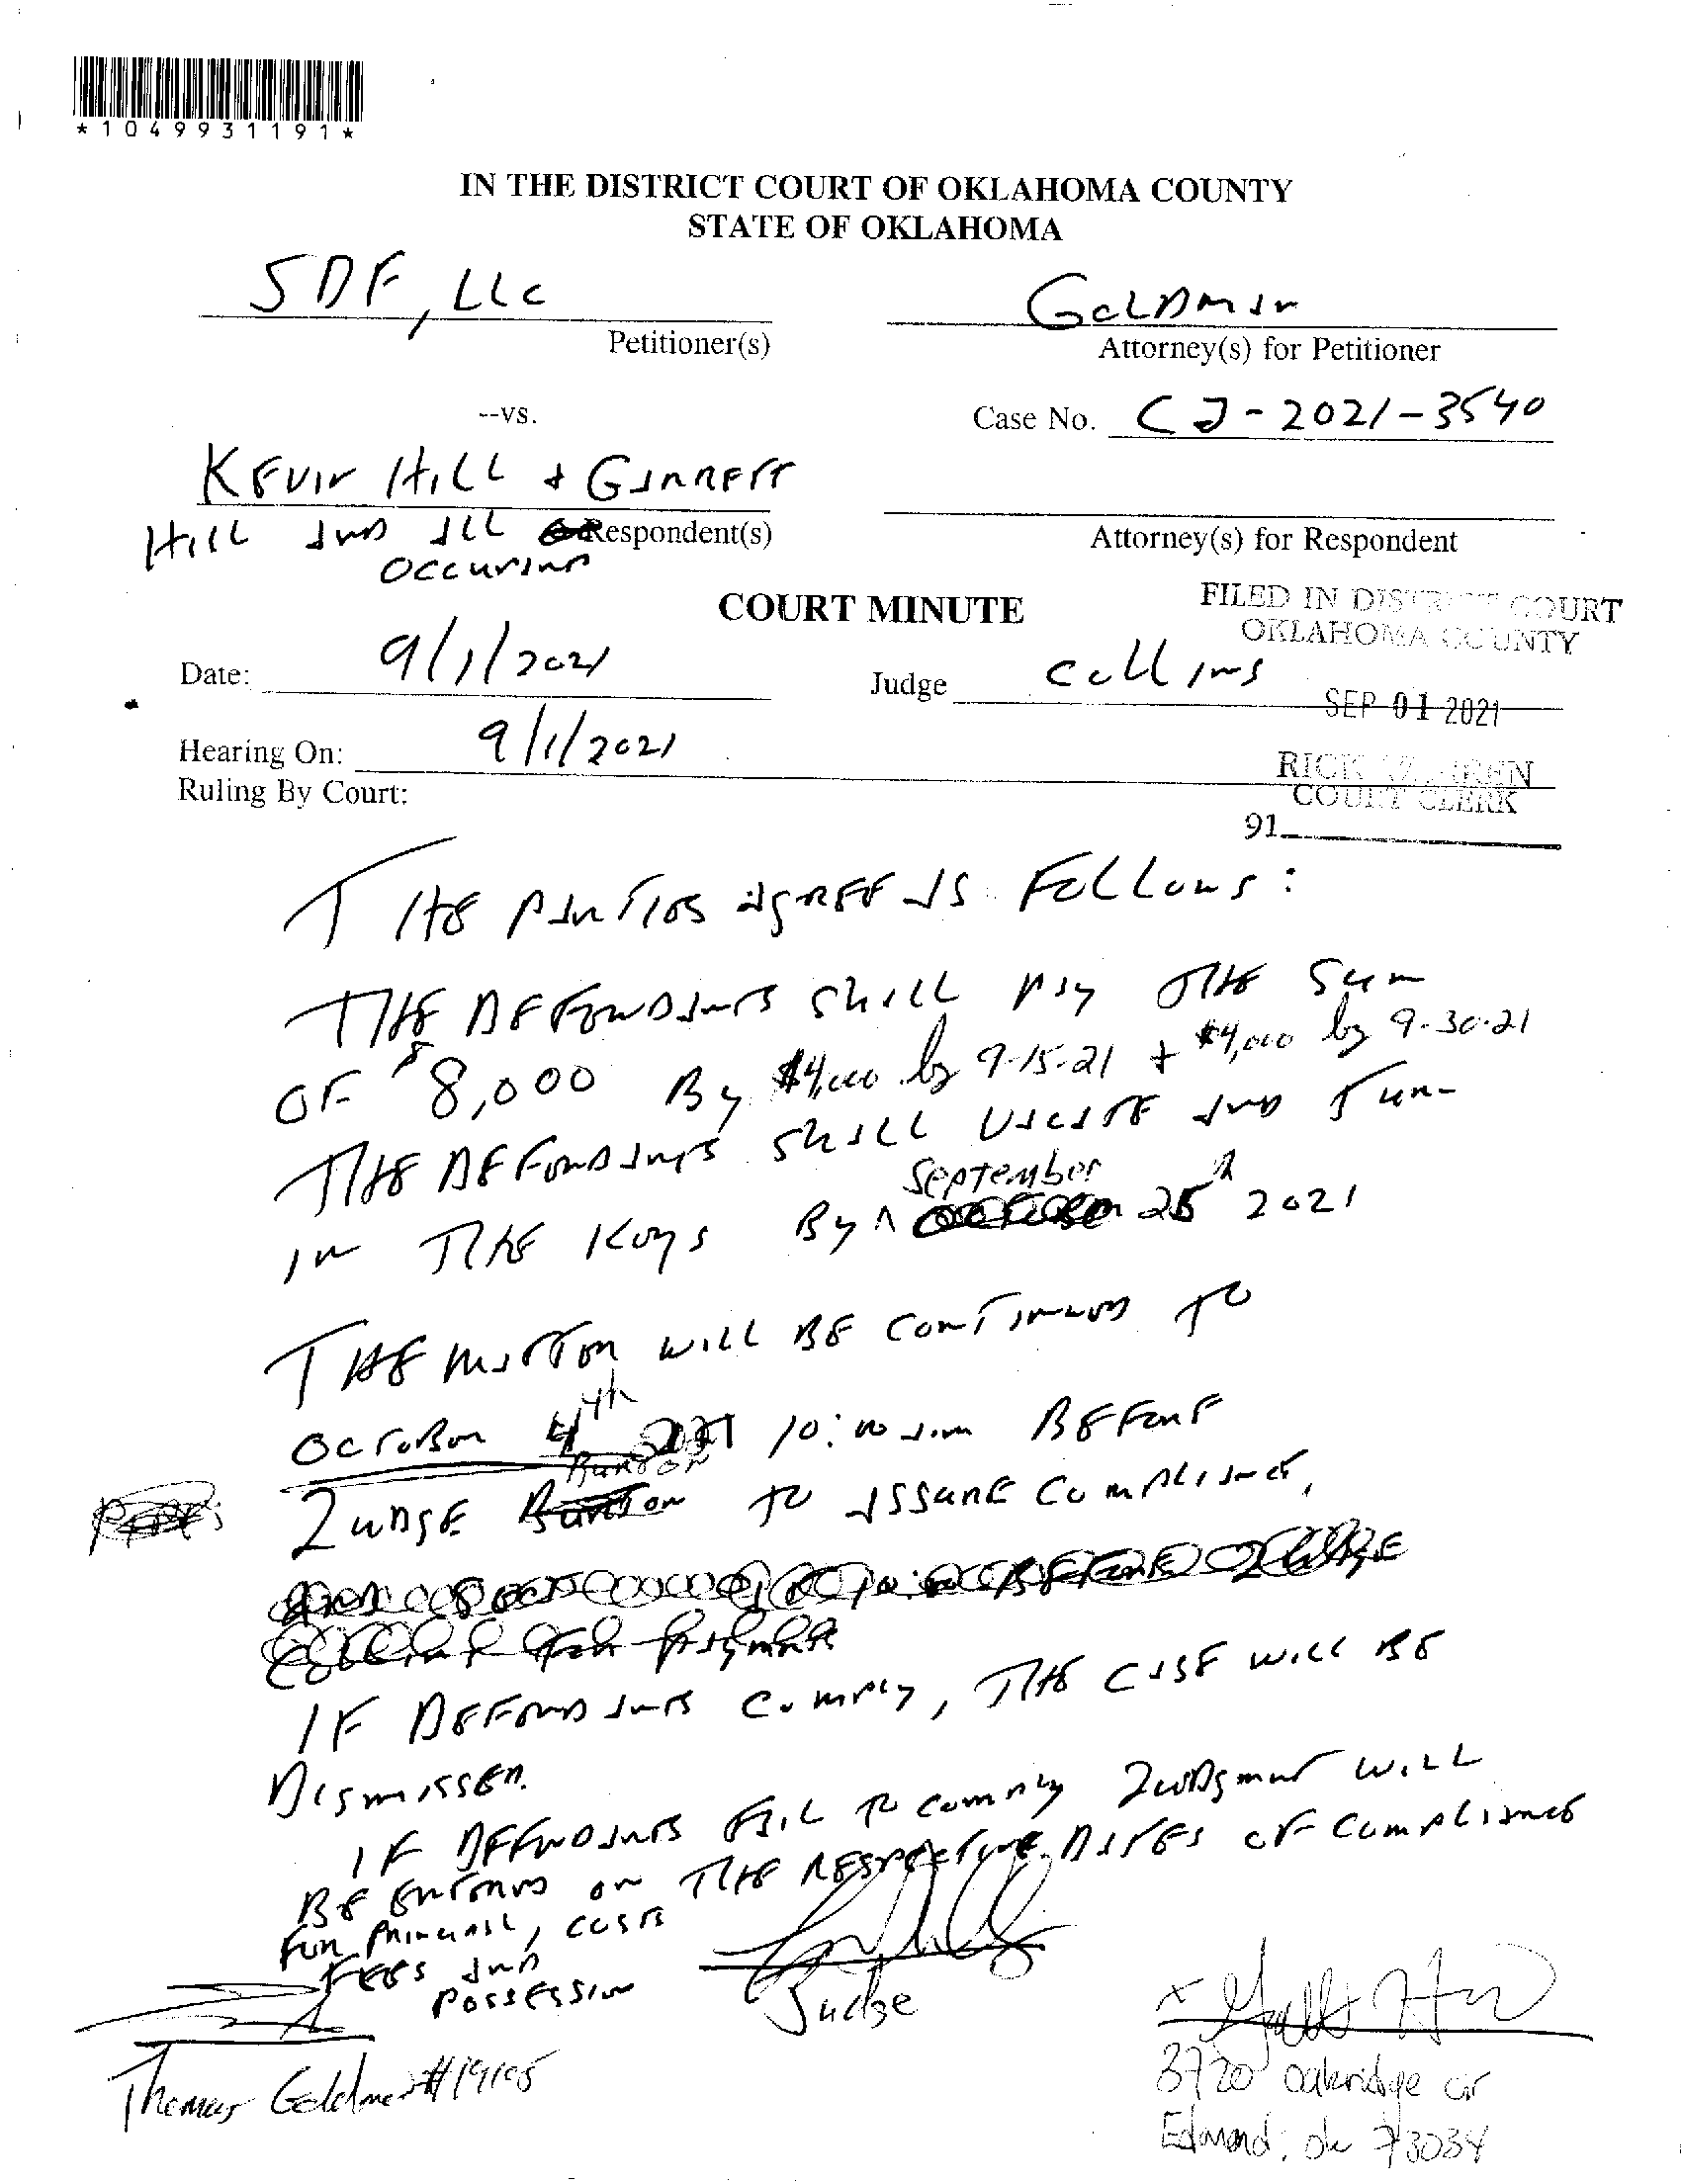 *1049931191*
IN THE DISTRICT COURT OF OKLAHOMA COUNTY
STATE OF OKLAHOMA
SDF, LLC
Petitioner(s)
GOLDMAN
Attorney(s) for Petitioner
--vs.
Case No. CJ-2021-3540
KEVIN HILL + GARRETT
HILL AND ALL Respondent(s)
OCCUPANT
Attorney(s) for Respondent
COURT MINUTE
FILED IN DISTRICT COURT
OKLAHOMA COUNTY
Date: 9/1/2021
Judge Collins
SEP 01 2021
Hearing On: 9/1/2021
RICK WARREN
COURT CLERK
Ruling By Court:
91
THE PARTIES AGREE AS FOLLOWS:
THE DEFENDANTS SHALL PAY THE SUM
OF $8,000 By $4,000 by 9-15-21 + $4,000 by 9-30-21
THE DEFENDANTS SHALL VACATE AND TURN
IN THE KEYS By September 25th 2021
THE MATTER WILL BE CONTINUED TO
OCTOBER 4th 2021 10:00 a.m BEFORE
JUDGE TO ASSURE COMPLIANCE,
IF DEFENDANTS COMPLY, THE CASE WILL BE
DISMISSED.
IF DEFENDANTS FAIL TO COMPLY JUDGMENT WILL
BE ENTERED ON THE RESPECTIVE DATES OF COMPLIANCE
FOR PRINCIPAL, COSTS
FEES AND
POSSESSION
Judge
Thomas Goldman #19105
3720 Oakridge cir
Edmond, ok 73034